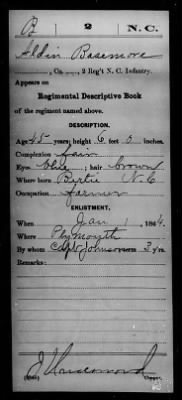 B 2 N.C.
Aldin Basemore
, Co. , 2 Reg't N. C. Infantry.
Appears on
Regimental Descriptive Book
of the regiment named above.
DESCRIPTION.
Age 45 years; height 6 feet 0 inches.
Complexion Fair
Eyes Blue ; hair brown
Where born Bertie N. C
Occupation Farmer
ENLISTMENT.
When Jan 1 , 1864.
Where Plymouth
By whom Capt Johnson term 3 y'rs.
Remarks:
Copyist.